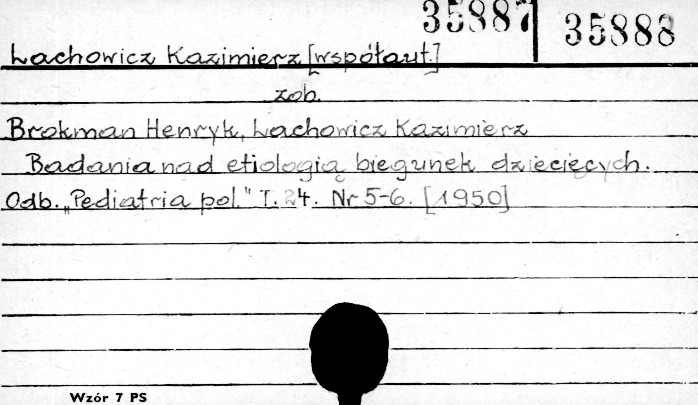 35887 35888
Lachowicz Kazimierz [współaut.]
zob.
Brokman Henryk, Lachowicz Kazimierz
Badania nad etiologią biegunek dziecięcych.
Odb. „Pediatria pol." T. 24. Nr 5-6. [1950]
Wzór 7 PS